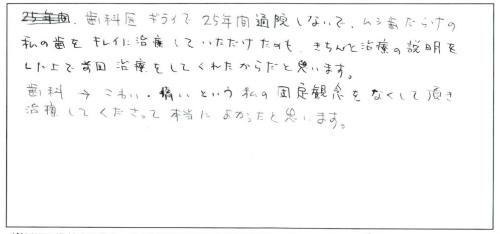 25年間、歯科医ギライで25年間通院しないで、ムシ歯だらけの
私の歯をキレイに治療していただけたのも、きちんと治療の説明を
した上で毎回治療をしてくれたからだと思います。
歯科→こわい・痛いという私の固定観念をなくして頂き
治療してくださって本当によかったと思います。